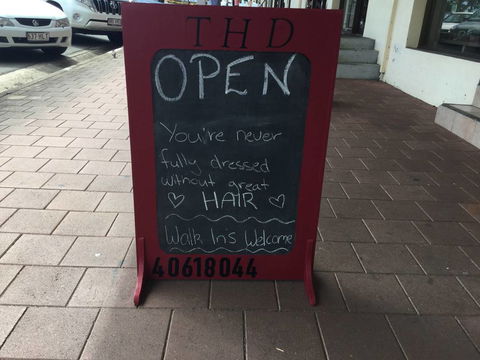 THD
OPEN
You're never
fully dressed
without great
♡ HAIR ♡
Walk In's Welcome
40618044